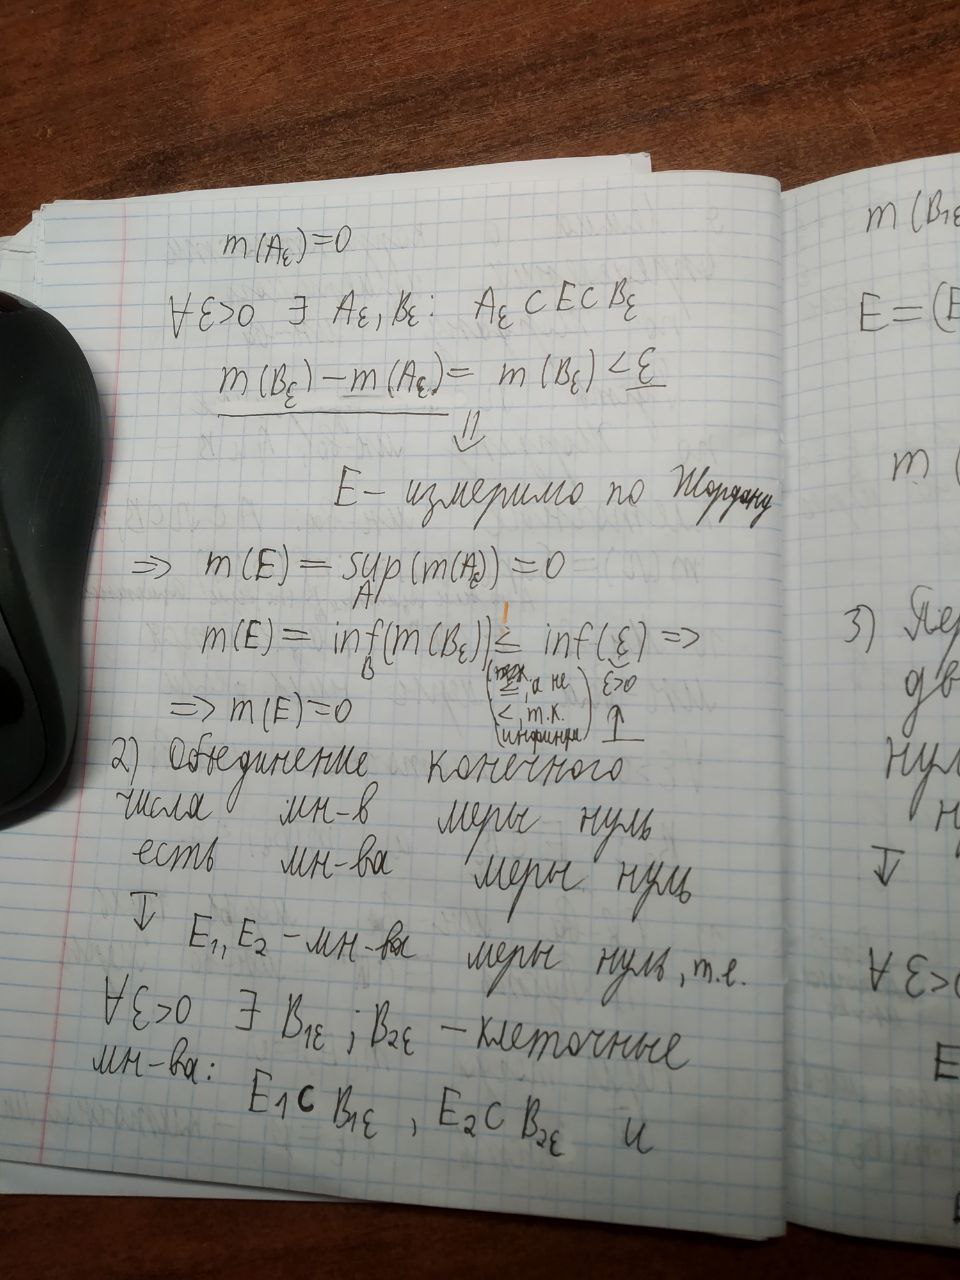 m(A_ε)=0
∀ε>0 ∃ A_ε, B_ε: A_ε ⊂ E ⊂ B_ε
m(B_ε) − m(A_ε) = m(B_ε) < ε
⇓
E – измеримо по Жордану
=> m(E) = sup_A (m(A_ε)) = 0
m(E) = inf_B (m(B_ε)) ≤ inf_{ε>0} (ε) =>
≤, а не
<, т.к.
=> m(E)=0
2) Объединение конечного
числа мн-в меры нуль
есть мн-ва меры нуль
E₁, E₂ – мн-ва меры нуль, т.е.
∀ε>0 ∃ B_1ε ; B_2ε – клеточные
мн-ва:
E₁ ⊂ B_1ε , E₂ ⊂ B_2ε и
m(B_1ε
E=(E
m(
3)
∀ε>0
E